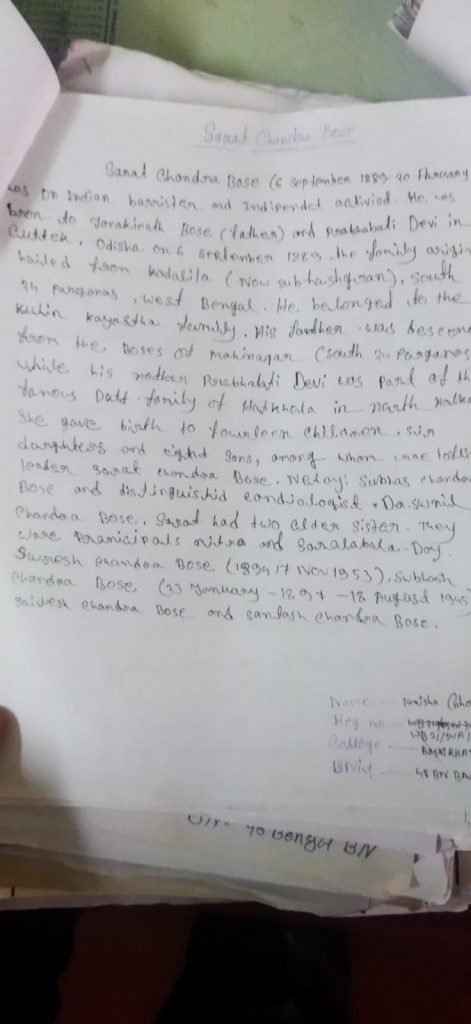 Sarat Chandra Bose
Sarat Chandra Bose (6 September 1889- 20 Fhruary
was on Indian barrister and Indipended activisd. He was
bron to Janakinath Bose (father) and Prabhabati Devi in
Cuttek, Odisha on 6 september 1289 the family origin
hailed from Kodalila (Now subhashgram), South
24 parganas, west Bengal. He belonged to the
Kulin Kayastha family. His fardher was descen
from the Boses of Mahinagar (south 24 Parganas
while his mother Prabhabati Devi was part of th
famous Dutt family of Hadkhola in north Kolka
She gave birth to fourteen children, six
daughters and eight sons, among whom were
leader sarat chandra Bose, Netaji Subhas chandra
Bose and distinguishid cardiologist Da. sunil
Chandra Bose. Sarat had two elder sister. They
ware Pramicipals mitra and Saralabala Day.
Suresh chandra Bose (1894 17 Nov 1953), Subhash
Chandra Bose (23 January - 1897 - 18 Augusd 1945
Sailesh chandra Bose and santosh chandra Bose.
Name — Tanisha
Reg no —
WB21/SWA/
College — BASIRHA
UNit — 48 BN BA
40 Bengal BN